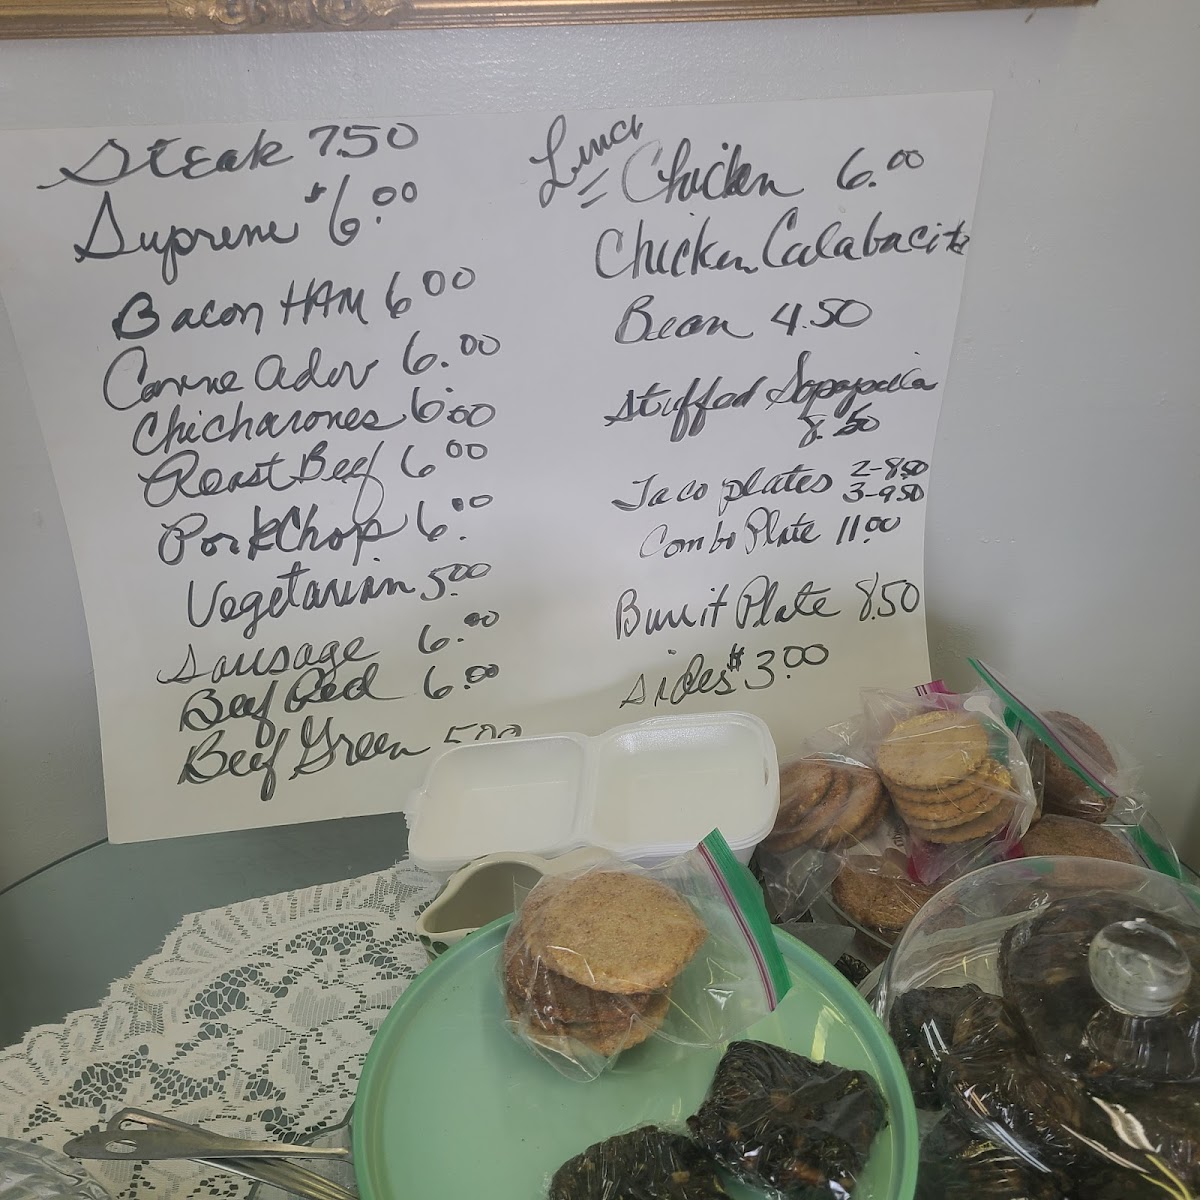 Steak 7.50
Supreme $6.00
Bacon HAM 6.00
Carne Adov 6.00
Chicharones 6.00
Roast Beef 6.00
PorkChop 6.00
Vegetarian 5.00
Sausage 6.00
Beef Red 6.00
Beef Green 5.00
Chicken 6.00
Chicken Calabacita
Bean 4.50
Stuffed Sopapilla
8.50
Taco plates 2-8.50
3-9.50
Combo Plate 11.00
Burrit Plate 8.50
Sides $3.00